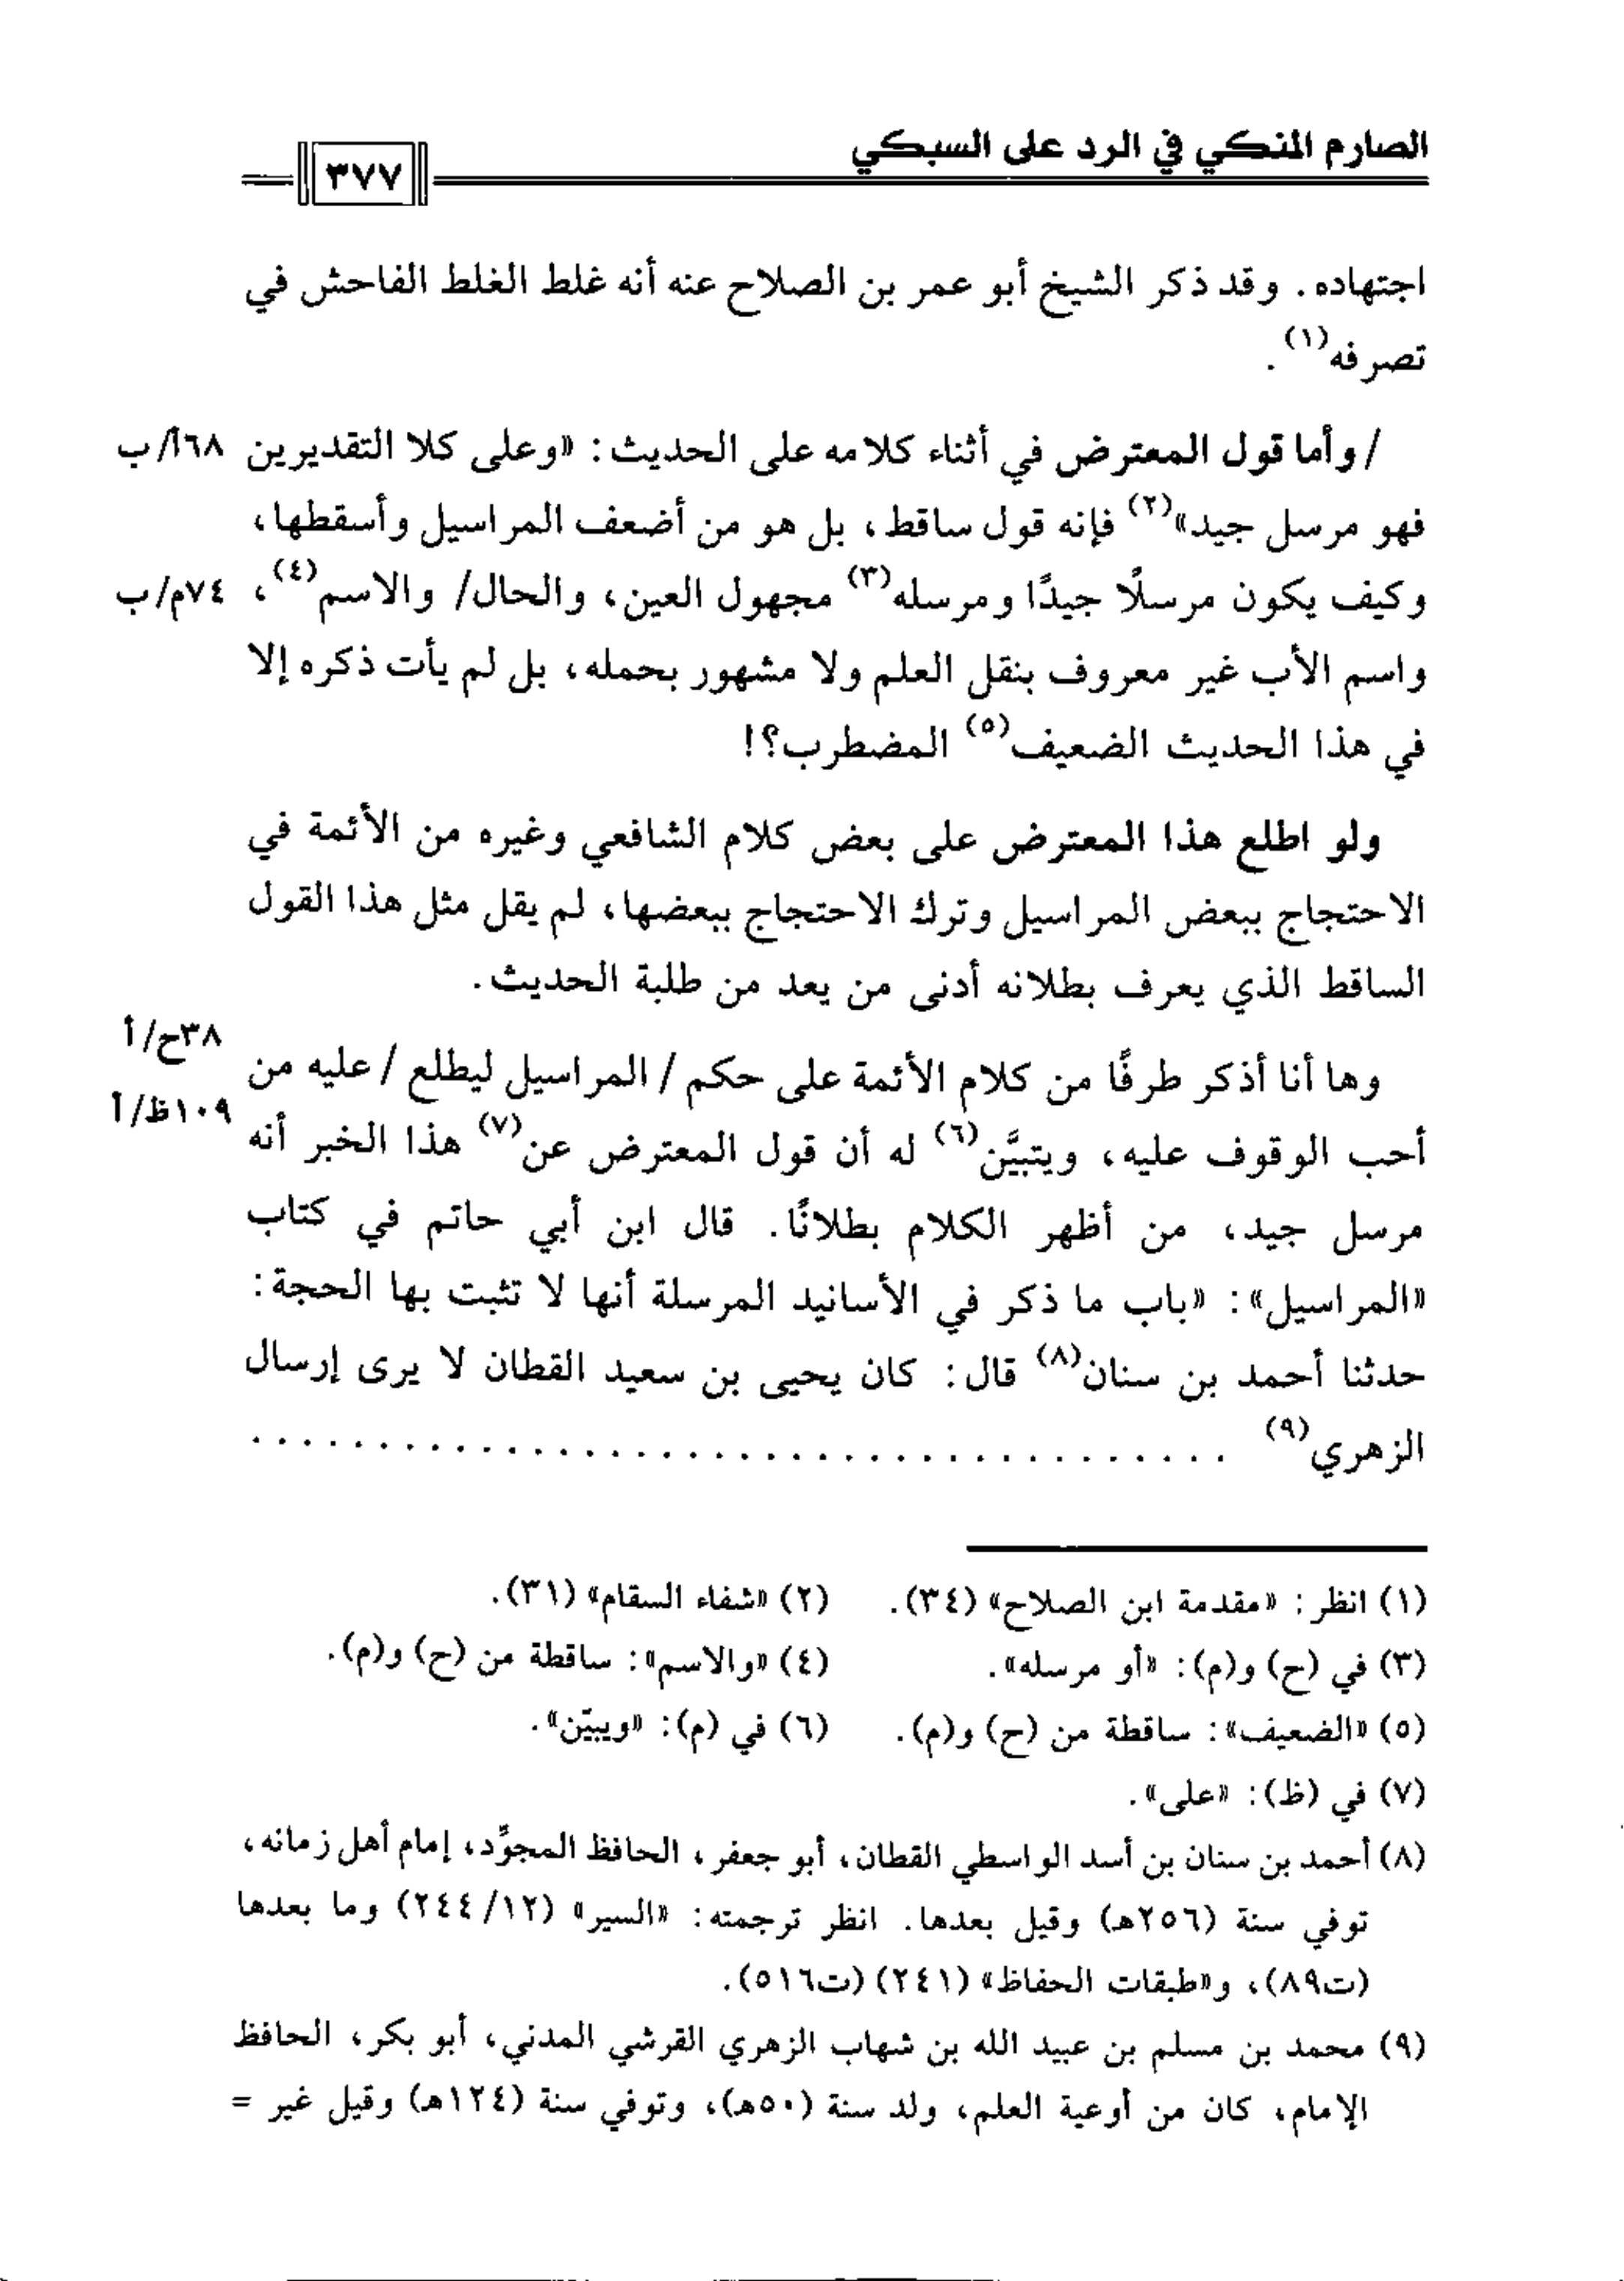 الصارم المنكي في الرد على السبكي
٣٧٧
اجتهاده. وقد ذكر الشيخ أبو عمر بن الصلاح عنه أنه غلط الغلط الفاحش في
تصرفه(١).
/ وأما قول المعترض في أثناء كلامه على الحديث: «وعلى كلا التقديرين ٦٨أ/ب
فهو مرسل جيد»(٢) فإنه قول ساقط، بل هو من أضعف المراسيل وأسقطها،
وكيف يكون مرسلًا جيدًا ومرسله(٣) مجهول العين، والحال/ والاسم(٤)، ٧٤م/ب
واسم الأب غير معروف بنقل العلم ولا مشهور بحمله، بل لم يأت ذكره إلا
في هذا الحديث الضعيف(٥) المضطرب؟!
ولو اطلع هذا المعترض على بعض كلام الشافعي وغيره من الأئمة في
الاحتجاج ببعض المراسيل وترك الاحتجاج ببعضها، لم يقل مثل هذا القول
الساقط الذي يعرف بطلانه أدنى من يعد من طلبة الحديث.
وها أنا أذكر طرفًا من كلام الأئمة على حكم / المراسيل ليطلع / عليه من ٣٨ح/أ
أحب الوقوف عليه، ويتبيَّن(٦) له أن قول المعترض عن(٧) هذا الخبر أنه ١٠٩ظ/أ
مرسل جيد، من أظهر الكلام بطلانًا. قال ابن أبي حاتم في كتاب
«المراسيل»: «باب ما ذكر في الأسانيد المرسلة أنها لا تثبت بها الحجة:
حدثنا أحمد بن سنان(٨) قال: كان يحيى بن سعيد القطان لا يرى إرسال
الزهري(٩) . . . . . . . . . . . . . . . . . . . . . . . . . . . . . . . . . . . . . .
(١) انظر: «مقدمة ابن الصلاح» (٣٤). (٢) «شفاء السقام» (٣١).
(٣) في (ح) و(م): «أو مرسله». (٤) «والاسم»: ساقطة من (ح) و(م).
(٥) «الضعيف»: ساقطة من (ح) و(م). (٦) في (م): «ويبيّن».
(٧) في (ظ): «على».
(٨) أحمد بن سنان بن أسد الواسطي القطان، أبو جعفر، الحافظ المجوِّد، إمام أهل زمانه،
توفي سنة (٢٥٦هـ) وقيل بعدها. انظر ترجمته: «السير» (١٢/ ٢٤٤) وما بعدها
(ت٨٩)، و«طبقات الحفاظ» (٢٤١) (ت٥١٦).
(٩) محمد بن مسلم بن عبيد الله بن شهاب الزهري القرشي المدني، أبو بكر، الحافظ
الإمام، كان من أوعية العلم، ولد سنة (٥٠هـ)، وتوفي سنة (١٢٤هـ) وقيل غير =